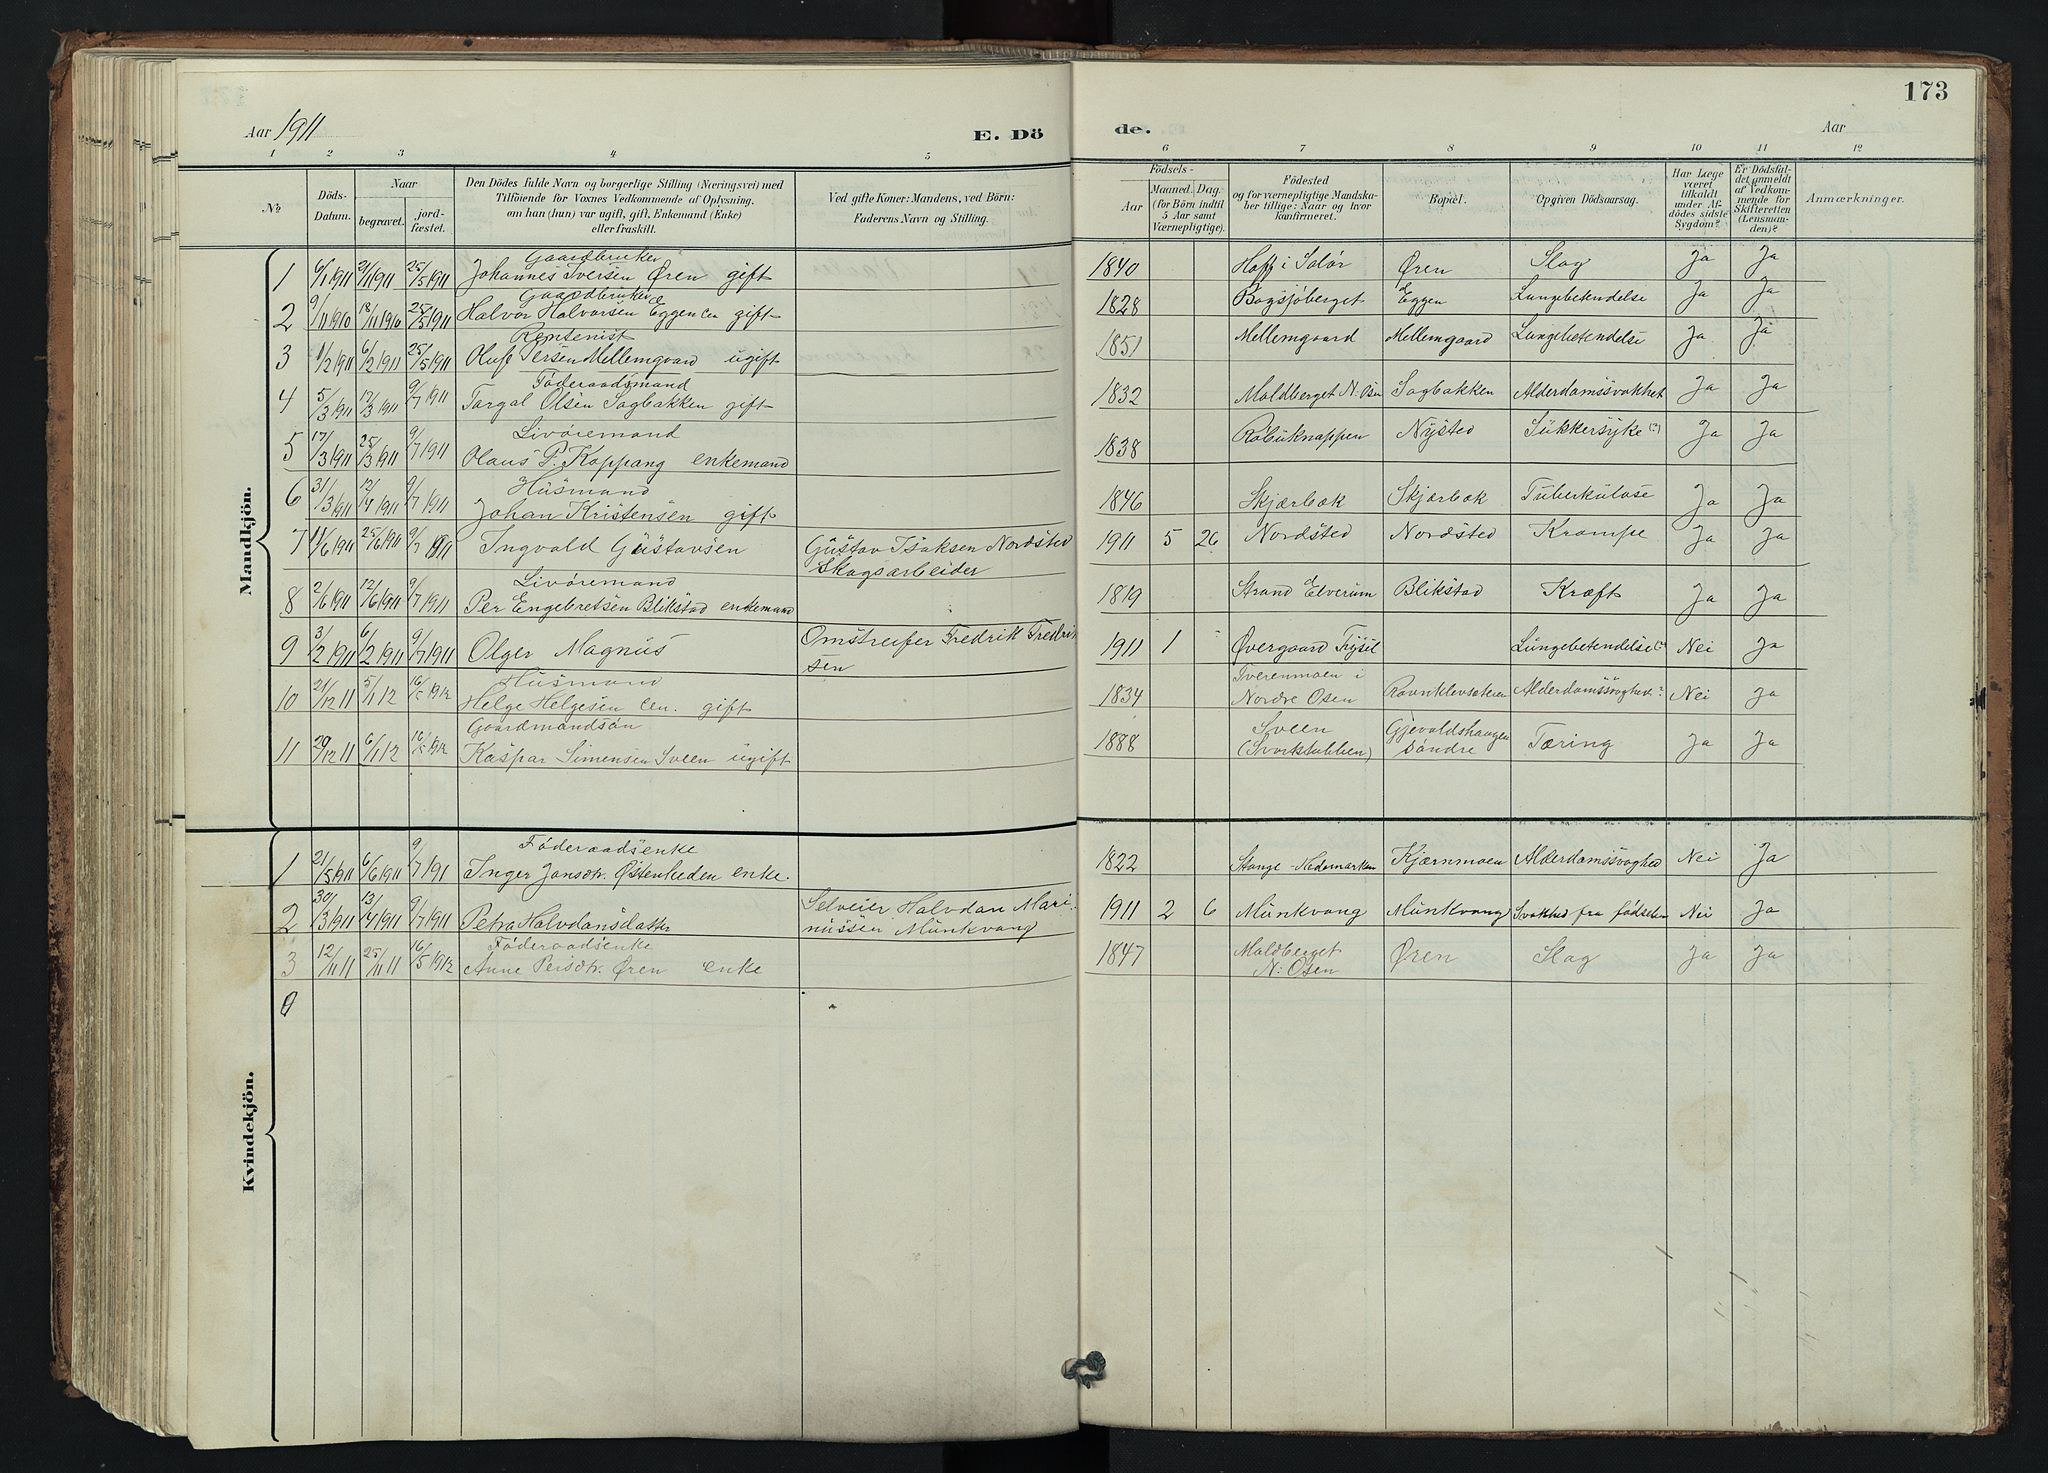 173
Aar 1911
E. Dö
de.
Aar
1 2 3 4 5 6 7 8 9 10 11 12
№
Döds-Datum.
Naar
begravet.
jord-fæstet.
Den Dödes fulde Navn og borgerlige Stilling (Næringsvei) med
Tilföiende for Voxnes Vedkommende af Oplysning,
om han (hun) var ugift, gift, Enkemand (Enke)
eller fraskilt.
Ved gifte Koner: Mandens, ved Börn:
Faderens Navn og Stilling.
Födsels-
Aar
Maaned. Dag.
(for Börn indtil
5 Aar samt
Værnepligtige).
Födested
og for værnepligtige Mandska-
ber tillige: Naar og hvor
konfirmeret.
Bopæl.
Opgiven Dödsaarsag.
Har Læge
været
tilkaldt
under Af-
dödes sidste
Sygdom?
Er Dödsfal-
det anmeldt
af Vedkom-
mende for
Skifteretten
(Lensman-
den)?
Anmærkninger.
Mandkjön.
Gaardbruker
1 6/1 1911 21/1 1911 25/5 1911 Johannes Iversen Øren gift 1840 Hoff i Solør Øren Slag Ja Ja
Gaardbruker
2 9/11 1910 18/11 1910 25/5 1911 Halvor Halvorsen Eggen gift 1828 Bogsjøberget Eggen Lungebetendelse Ja Ja
Rentenist
3 1/2 1911 6/2 1911 25/5 1911 Oluf Persen Mellemgaard ugift 1851 Mellemgaard Mellemgaard Lungebetendelse Ja Ja
Föderaadsmand
4 5/3 1911 12/3 1911 9/7 1911 Torgal Olsen Sagbakken gift 1832 Moldberget N. Osen Sagbakken Alderdomssvakhet Ja Ja
Livöremand
5 17/3 1911 25/3 1911 9/7 1911 Olaus P. Koppang enkemand 1838 Nysted Sukkersyke (?) Ja Ja
Husmand
6 31/3 1911 12/4 1911 9/7 1911 Johan Kristensen gift 1846 Skjærbæk Skjærbæk Tuberkulose Ja Ja
7 6 1911 25/6 1911 9/7 1911 Ingvald Gustavsen Gustav Isaksen Nordsted 1911 5 26 Nordsted Nordsted Krampe Ja Ja
Skogsarbeider
Livöremand
8 2/6 1911 12/6 1911 9/7 1911 Per Engebretsen Blikstad enkemand 1819 Strand Elverum Blikstad Kræft Ja Ja
9 3/2 1911 6/2 1911 9/7 1911 Olger Magnus Omstreifer Fredrik Fredrik 1911 1 Øvergaard Trysil Lungebetendelse Nei Ja
sen
Husmand Tverenmoen i
10 21/12 11 5/1 12 16/5 1912 Helge Helgesen Een. gift 1834 Nordre Osen Alderdomssvaghed? Nei Ja
Gaardmandsön Sveen Gjevoldshaugen
11 29/12 11 6/1 12 16/5 1912 Kaspar Simensen Sveen ugift 1888 (Svorkstubben) söndre Tæring Ja Ja
Kvindekjön.
Föderaadsenke
1 21/5 1911 6/6 1911 9/7 191 Inger Jansdtr. Østenheden enke. 1822 Stange - Hedemarken Kjærnmoen Alderdomssvaghed Nei Ja
Selveier Halvdan Mari-
2 30/3 1911 13/4 1911 9/7 1911 Petra Halvdansdatter nussen Munkvang 1911 2 6 Munkvang Munkvang Svakhed fra födselen Nei Ja
Föderaadsenke Moldberget
3 12/11 11 25/11 11 16/5 1912 Anne Persdtr. Øren enke 1847 N: Osen Øren Slag Ja Ja
0